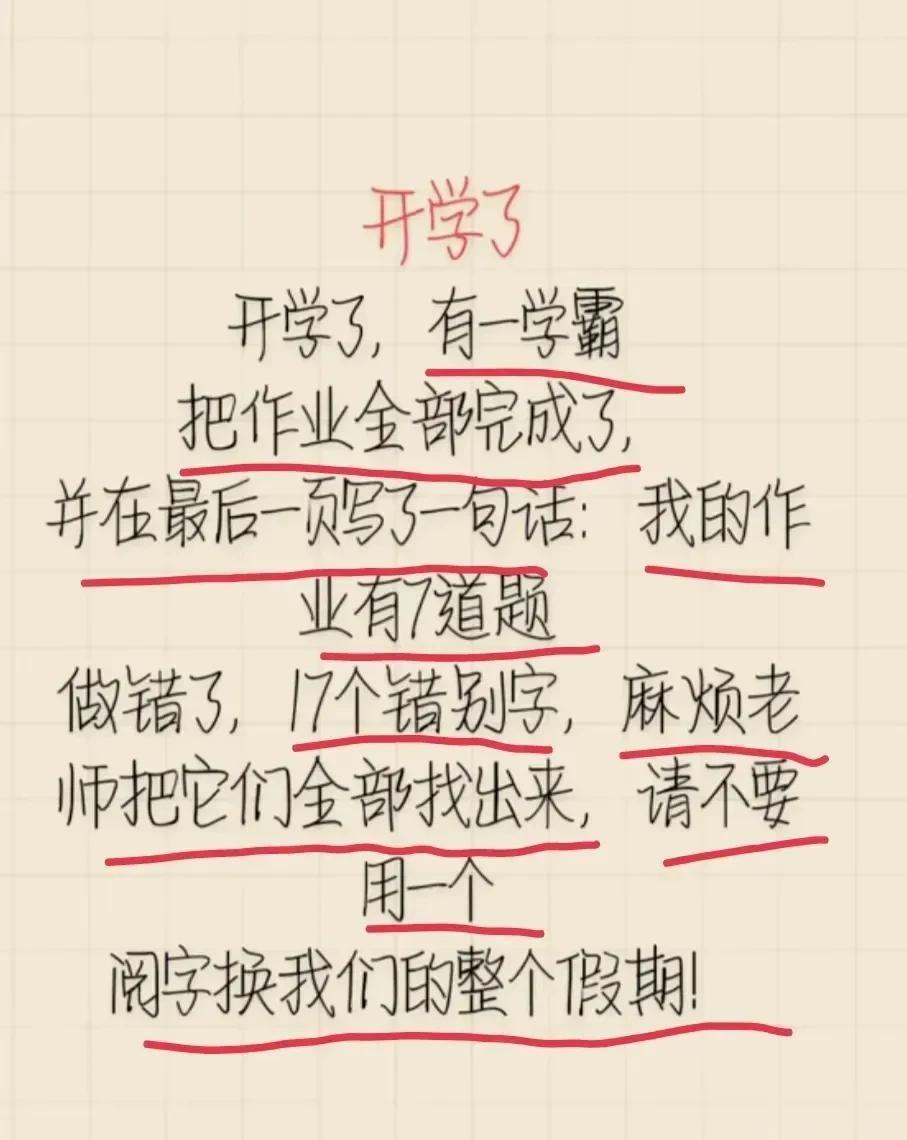 开学了
开学了，有一学霸
把作业全部完成了，
并在最后一页写了一句话：我的作
业有7道题
做错了，17个错别字，麻烦老
师把它们全部找出来，请不要
用一个
阅字换我们的整个假期！